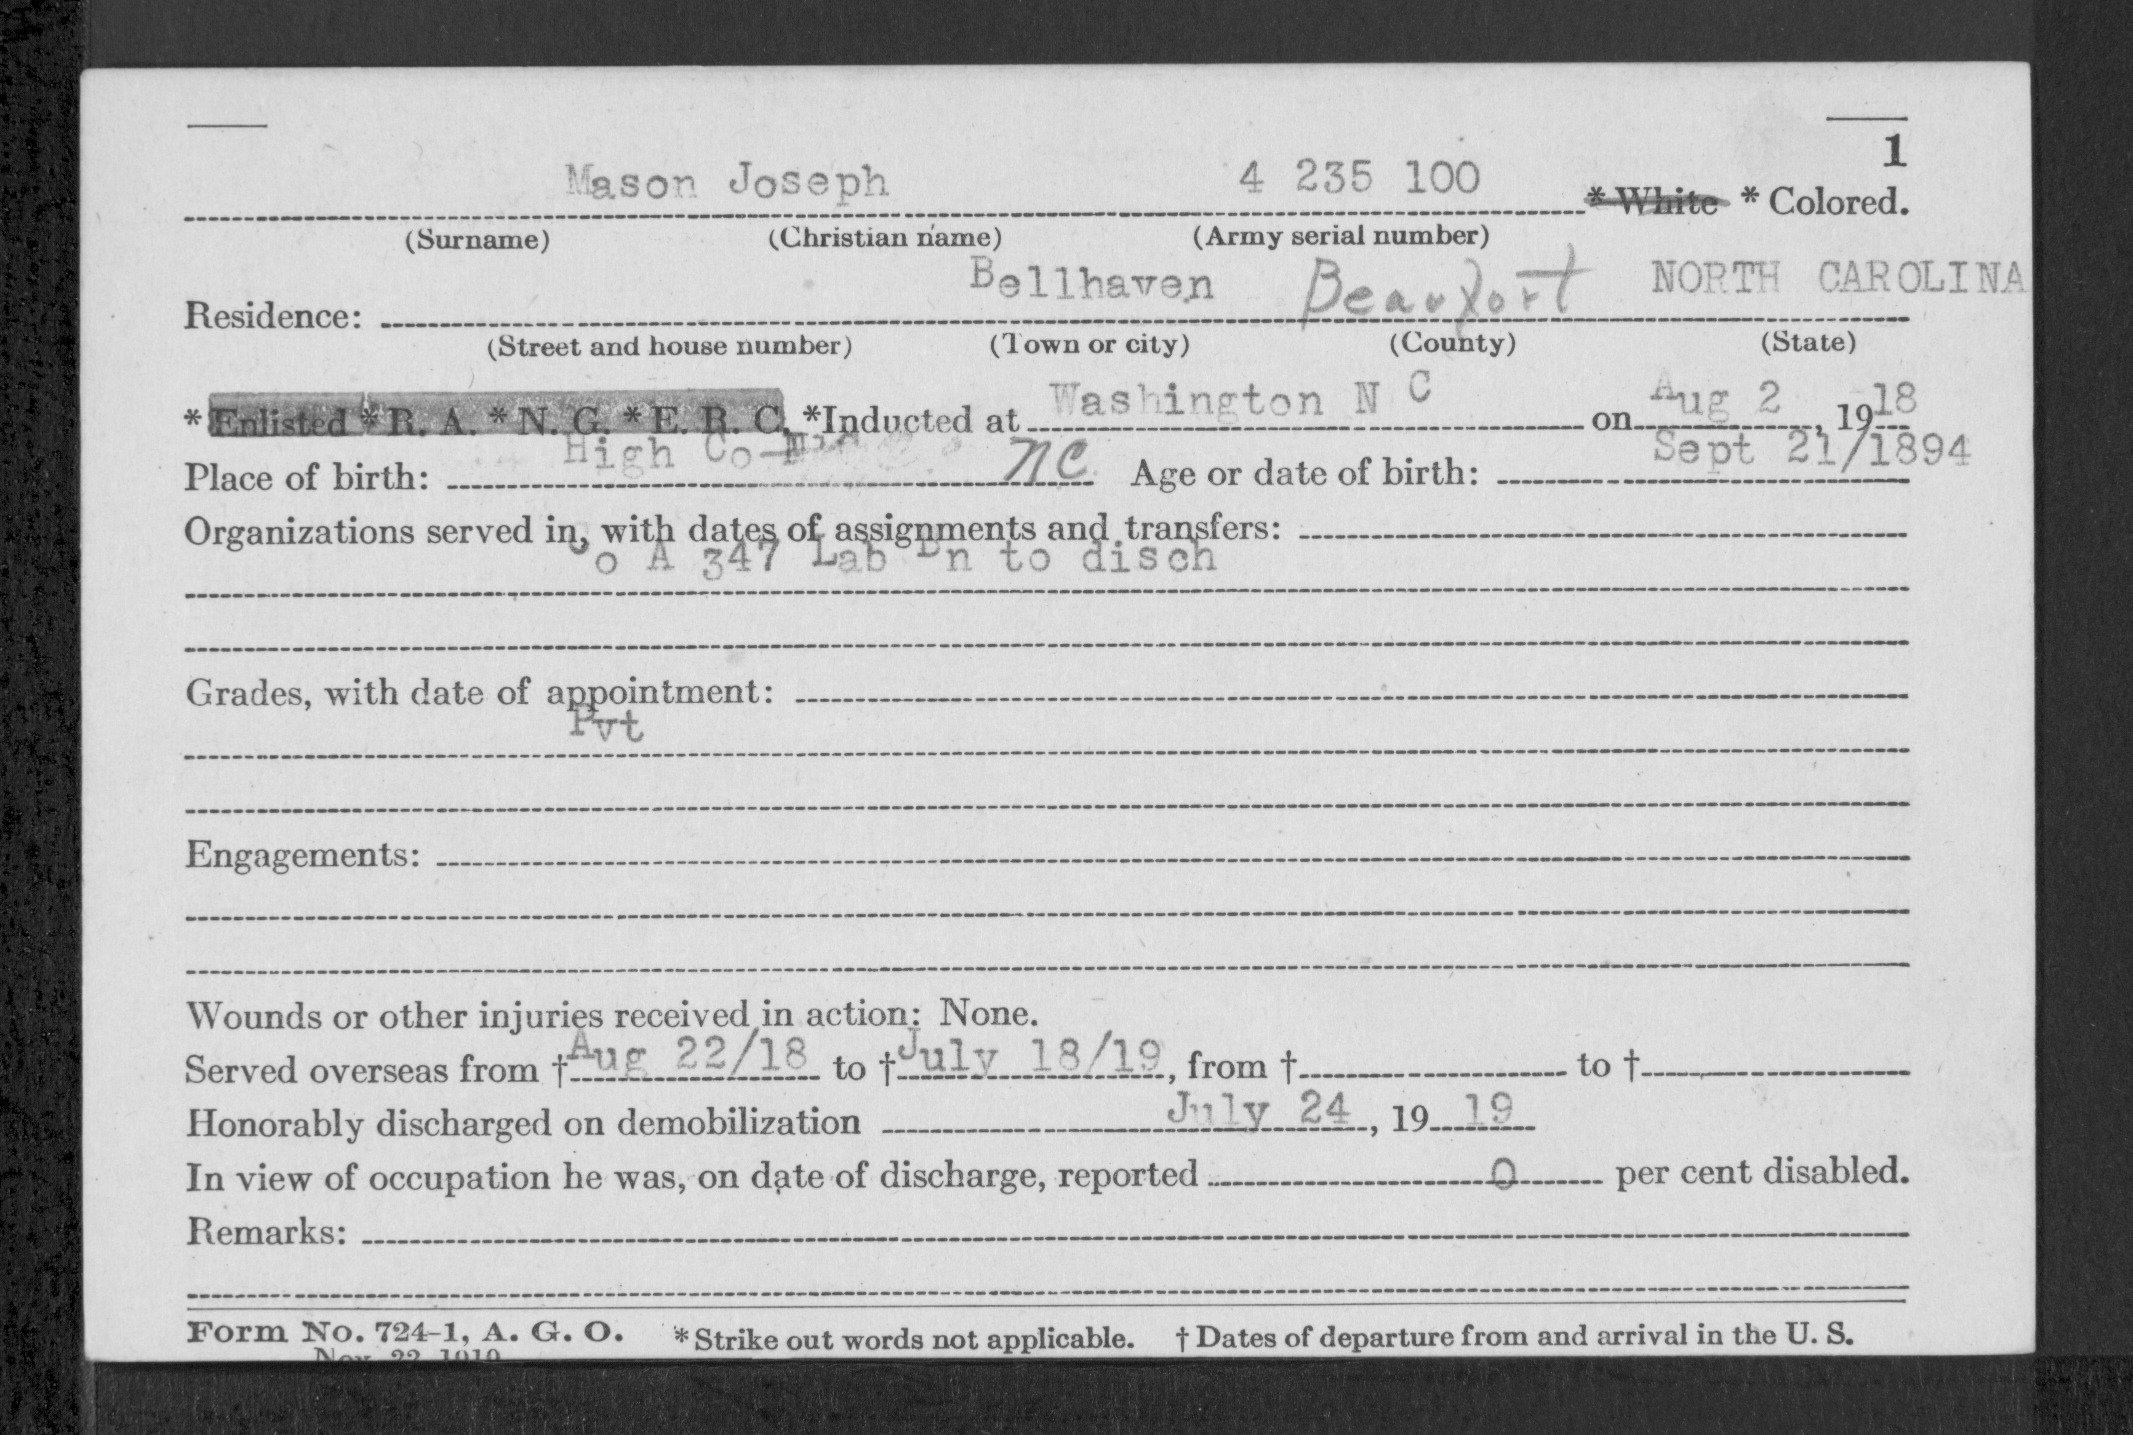 1
Mason Joseph 4 235 100 * White * Colored.
(Surname) (Christian name) (Army serial number)
Bellhaven Beaufort NORTH CAROLINA
Residence:
(Street and house number) (Town or city) (County) (State)
* Enlisted * R. A. * N. G. * E. R. C. *Inducted at Washington N C on Aug 2, 1918
Place of birth: High Co NC Age or date of birth: Sept 21/1894
Organizations served in, with dates of assignments and transfers:
Co A 347 Lab Bn to disch
Grades, with date of appointment:
Pvt
Engagements:
Wounds or other injuries received in action: None.
Served overseas from † Aug 22/18 to † July 18/19, from † to †
Honorably discharged on demobilization July 24, 19 19
In view of occupation he was, on date of discharge, reported 0 per cent disabled.
Remarks:
Form No. 724-1, A. G. O. * Strike out words not applicable. † Dates of departure from and arrival in the U. S.
Nov. 22, 1919